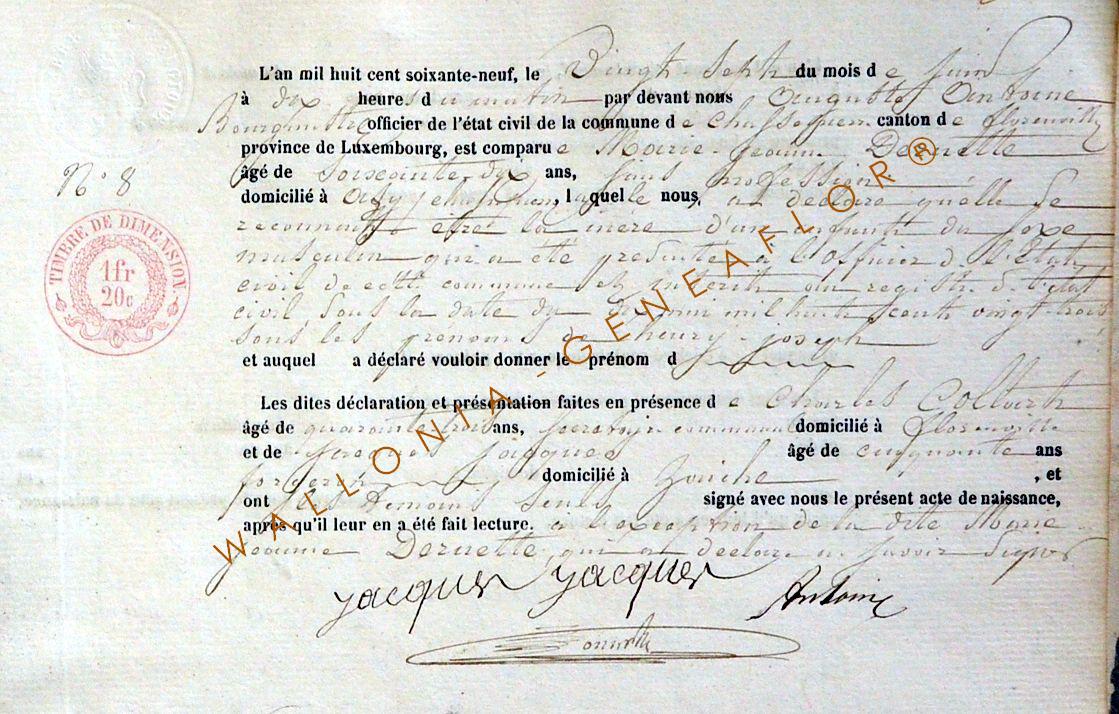 L'an mil huit cent soixante-neuf, le Vingt Sept du mois de juin
à dix heures du matin par devant nous Auguste Antoine
Bourgmestre officier de l'état civil de la commune de Chassepierre canton de florenville
province de Luxembourg, est comparue Marie-Jeanne Deruette
N° 8
âgé de soixante dix ans, sans profession
domicilié à laquelle nous, a declaré quelle Se
reconnait etre la mère d'un enfant du sexe
masculin qui a été presenté a l'officier de l'Etat
civil de cette commune et inscrit au registre de l'état
civil sous la date du dix mil huit cent vingt-trois
sous les prenoms de henry-joseph
et auquel a déclaré vouloir donner le prénom d
Les dites déclaration et présentation faites en présence de Charles
âgé de quarante trois ans, secretaire communal domicilié à florenville
et de jacques jacques âgé de cinquante ans
domicilié à , et
ont les temoins seuls signé avec nous le présent acte de naissance,
après qu'il leur en a été fait lecture. a l'exception de la dite Marie
jeanne Deruette qui a declaré ne savoir signer
jacques jacques Antoine
TIMBRE DE DIMENSION
1fr
20c
WALLONIA-GENEAFLOR®